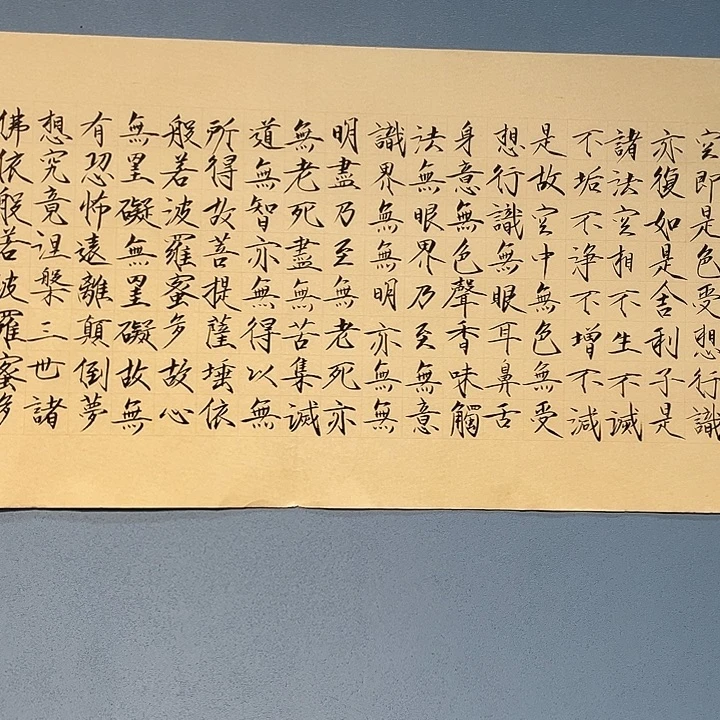 空即是色受想行識
亦復如是舍利子是
諸法空相不生不滅
不垢不淨不增不減
是故空中無色無受
想行識無眼耳鼻舌
身意無色聲香味觸
法無眼界乃至無意
識界無無明亦無無
明盡乃至無老死亦
無老死盡無苦集滅
道無智亦無得以無
所得故菩提薩埵依
般若波羅蜜多故心
無罣礙無罣礙故無
有恐怖遠離顛倒夢
想究竟涅槃三世諸
佛依般若波羅蜜多